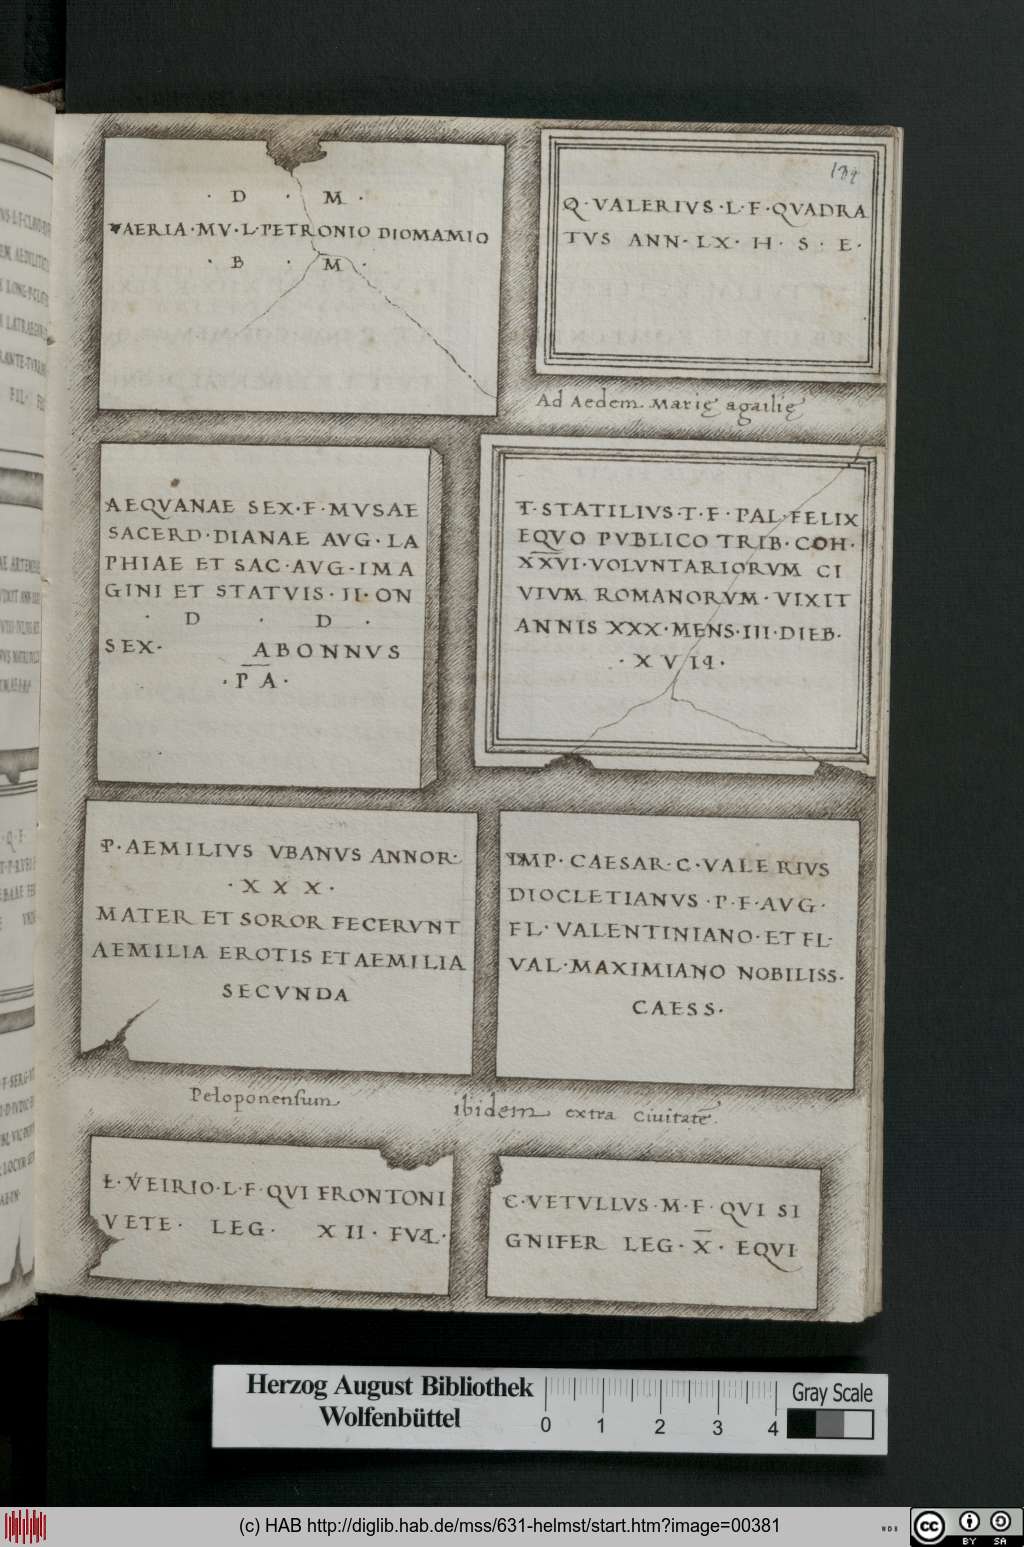 · D · M ·
VAERIA · MV · L · PETRONIO DIOMAMIO
· B · M ·
Q · VALERIVS · L · F · QVADRA
TVS ANN · LX · H · S · E ·
Ad Aedem Marię
AEQVANAE SEX · F · MVSAE
SACERD · DIANAE AVG · LA
PHIAE ET SAC · AVG · IMA
GINI ET STATVIS · II · ON
· D · D ·
SEX · ABONNVS
· P A ·
T · STATILIVS · T · F · PAL · FELIX
EQVO PVBLICO TRIB · COH ·
XXVI · VOLVNTARIORVM CI
VIVM ROMANORVM · VIXIT
ANNIS XXX · MENS · III · DIEB ·
P · AEMILIVS VBANVS ANNOR ·
· X X X ·
MATER ET SOROR FECERVNT
AEMILIA EROTIS ET AEMILIA
SECVNDA
IMP · CAESAR · C · VALERIVS
DIOCLETIANVS · P · F · AVG ·
FL · VALENTINIANO · ET FL ·
VAL · MAXIMIANO NOBILISS ·
CAESS ·
Peloponensium
ibidem extra ciuitatē.
L · VEIRIO · L · F · QVI FRONTONI
VETE · LEG · XII · FVL ·
C · VETVLLVS · M · F · QVI SI
GNIFER LEG · X̅ · EQVI
Herzog August Bibliothek
Wolfenbüttel
0 1 2 3 4
Gray Scale
(c) HAB http://diglib.hab.de/mss/631-helmst/start.htm?image=00381
WDB
CC BY SA